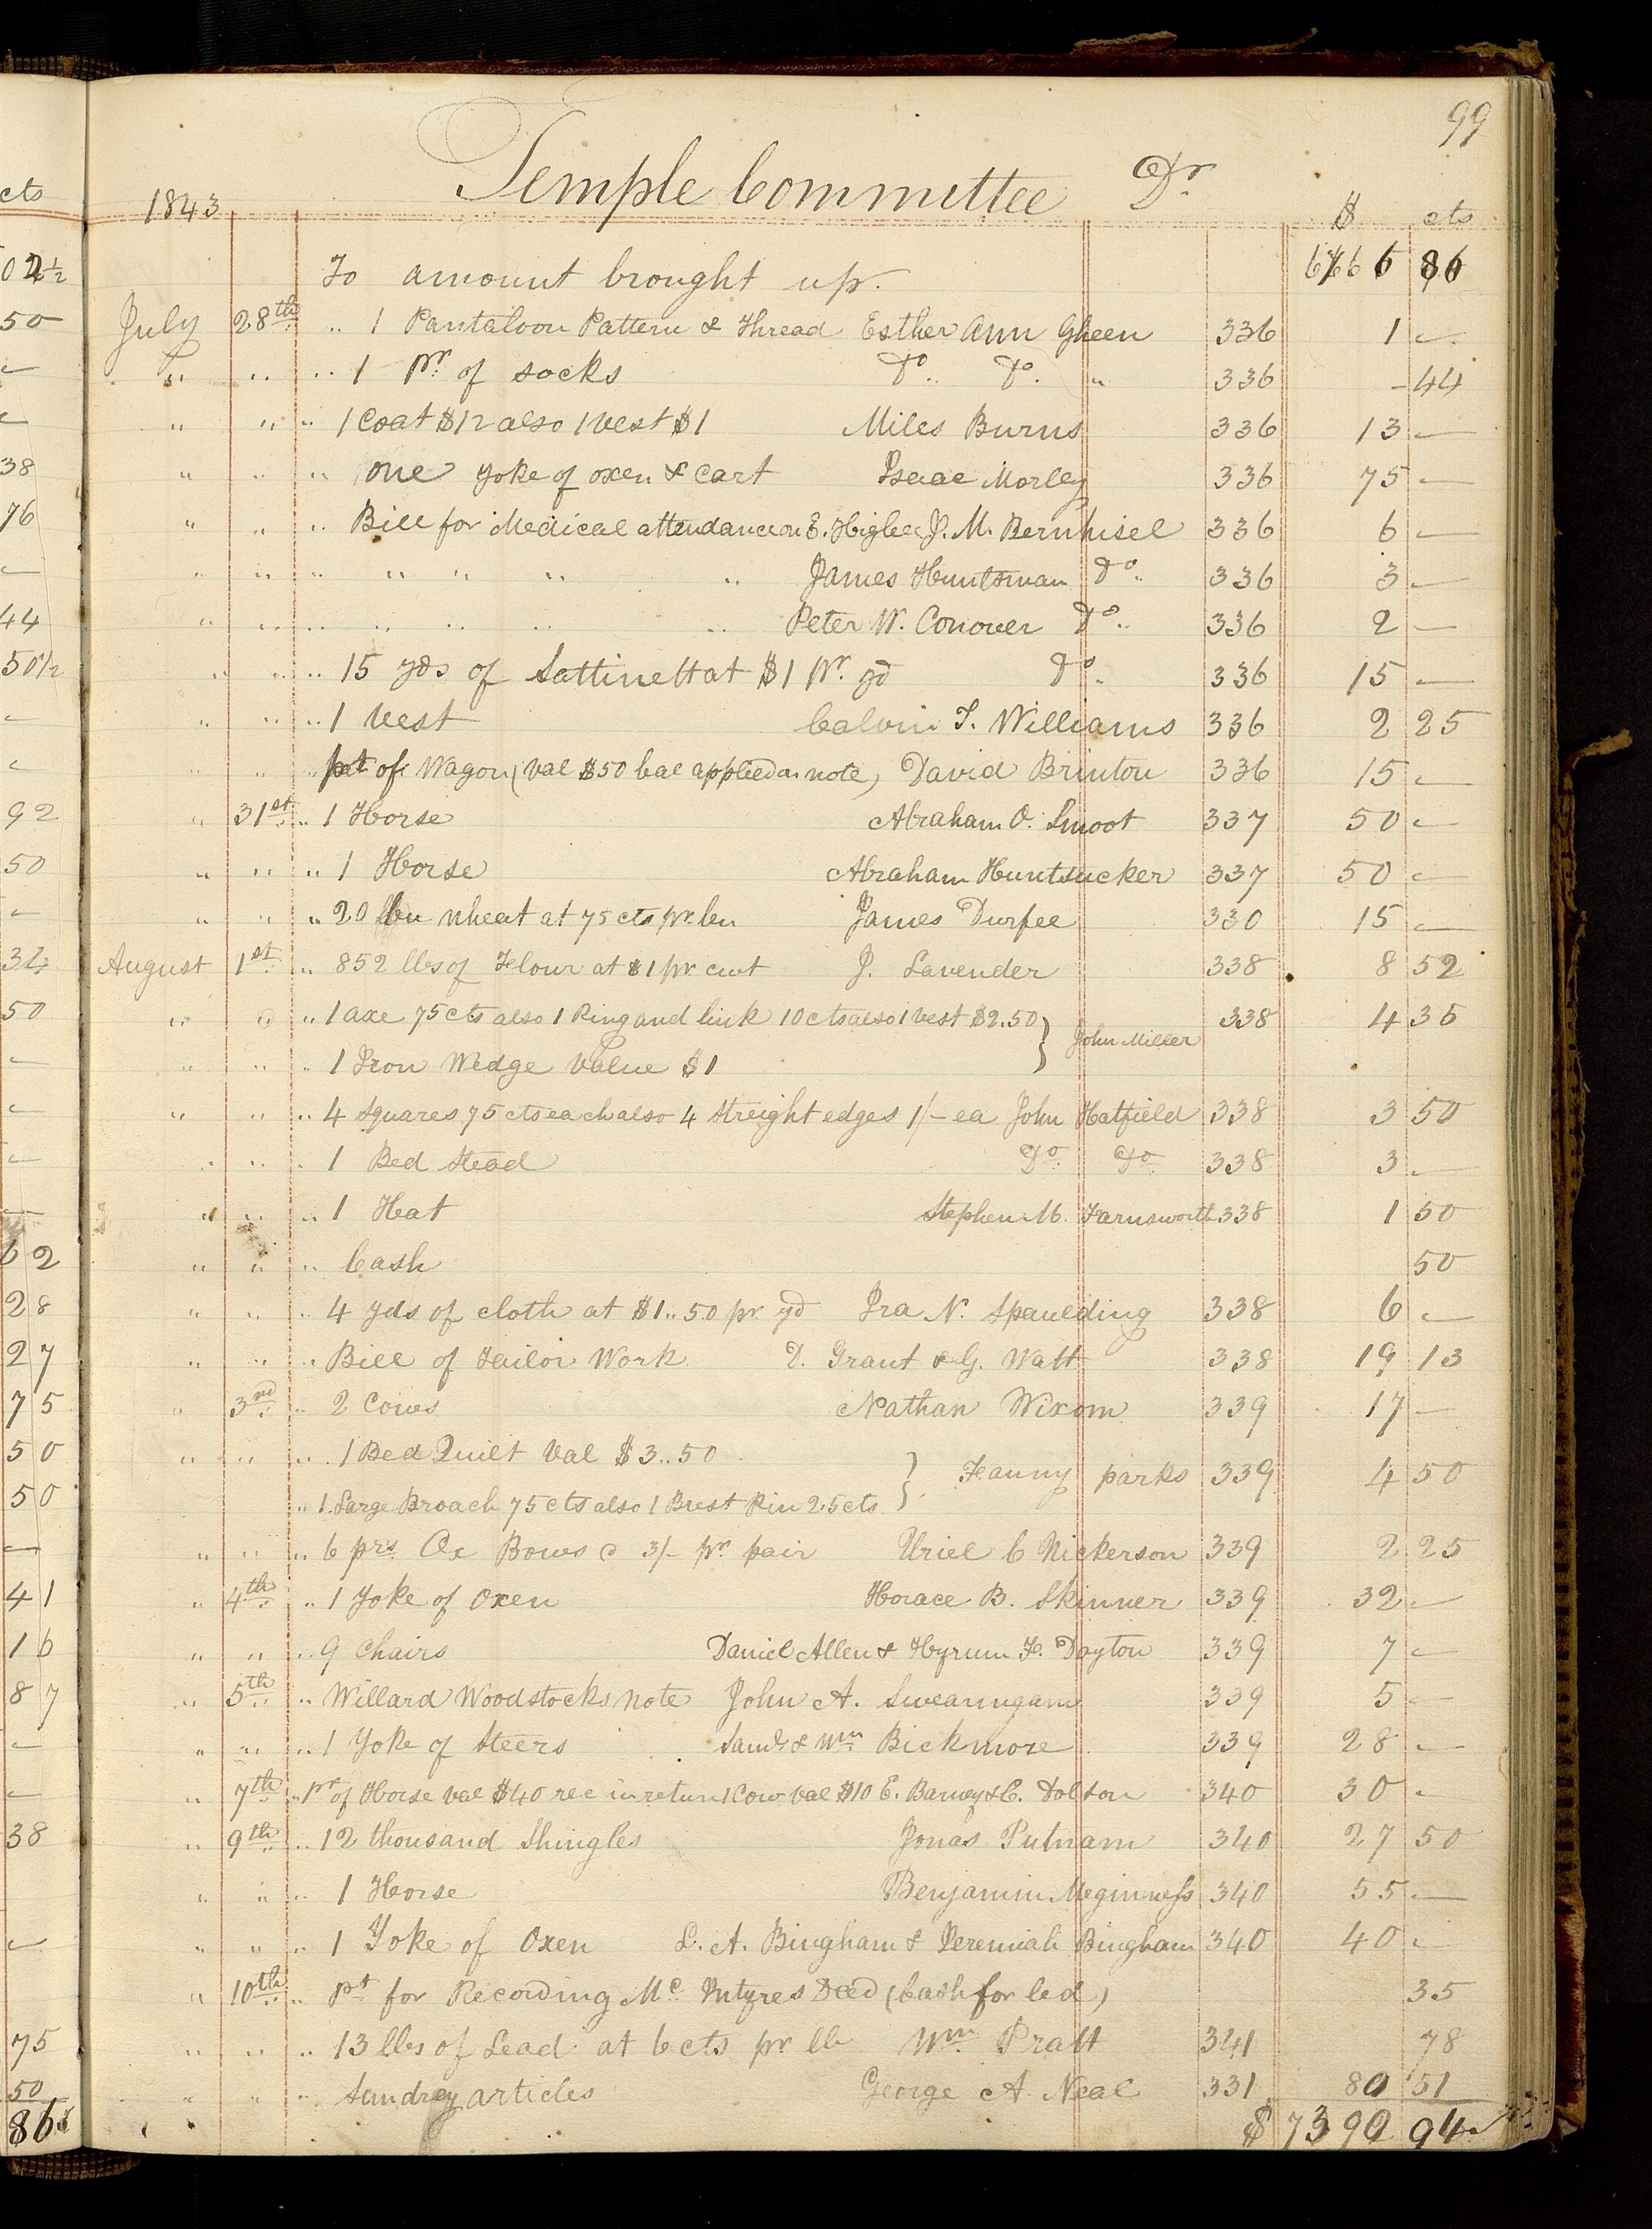 99
Temple Committee Dr
1843 $ cts
To amount brought up. 86
July 28th " 1 Pantaloon Pattern & Thread Esther Ann Gheen 336 1 —
" " " 1 Pr. of socks Do. Do. " 336 – 44
" " " 1 Coat $12 also 1 Vest $1 Miles Burns 336 13 —
" " " one yoke of oxen & Cart Isaac Morley 336 75 —
" " " Bill for Medical attendance on E. Higbee J. M. Bernhisel 336 6 —
" " " " " " " James Huntsman Do. 336 3 —
" " " " " " " Peter W. Conover Do. 336 2 —
" " " 15 yds of Sattinett at $1 Pr. yd Do. 336 15 —
" " " 1 Vest Calvin T. Williams 336 2 25
" " " of Wagon (Val $50 bal applied on note) David Brinton 336 15 —
" 31st " 1 Horse Abraham O. Smoot 337 50 —
" " " 1 Horse Abraham Huntsucker 337 50 —
" " " 20 bu wheat at 75 cts pr. bu James Durfee 330 15 —
August 1st " 852 lbs of Flour at $1 pr cwt J. Lavender 338 8 52
" " " 1 axe 75 cts also 1 Ring and link 10 cts also 1 vest $2.50 } John Miller 338 4 35
" " " 1 Iron Wedge Value $1
" " " 4 Squares 75 cts each also 4 Streight edges 1/– ea John Hatfield 338 3 50
" " " 1 Bed Stead Do. Do. 338 3 —
" " " 1 Hat Stephen M. Farnsworth 338 1 50
" " " Cash 50
" " " 4 yds of cloth at $1..50 pr. yd Ira N. Spaulding 338 6 —
" " " Bill of Tailor Work D. Grant & G. Watt 338 19 13
" 3rd " 2 Cows Nathan Wixom 339 17 —
" " " 1 Bed Quilt Val $3..50 } Fanny parks 339 4 50
" 1 Large Broach 75 cts also 1 Brest Pin 25 cts
" " " 6 prs. Ox Bows @ 3/– pr. pair Uriel C Nickerson 339 2 25
" 4th " 1 Yoke of Oxen Horace B. Skinner 339 32 —
" " " 9 Chairs Daniel Allen & Hyrum F. Dayton 339 7 —
" 5th " Willard Woodstocks note John A. Swearingam 339 5 —
" " " 1 Yoke of Steers Saml. & Wm. Bickmore 339 28 —
" 7th " Pt of Horse Val $40 rec in return 1 Cow Val $10 E. Barney & C. Dolton 340 30 —
" 9th " 12 thousand Shingles Jonas Putnam 340 27 50
" " " 1 Horse Benjamin Meginness 340 55 —
" " " 1 Yoke of Oxen L. A. Bingham & Jeremiah Bingham 340 40 —
" 10th " Pt for Recording Mc Intyres Deed (Cash for Led) 35
" " " 13 lbs of Lead at 6 cts pr lb Wm. Pratt 341 78
" " " Sundrey articles George A. Neal 331 80 51
$ 7390 94
cts
50
38
76
44
50 1/2
92
50
34
50
62
28
27
75
50
50
41
16
87
38
75
50
86